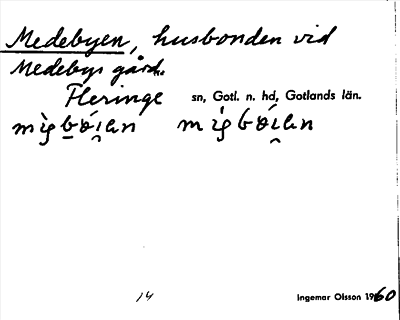 Medebyen, husbonden vid
Medebys gård.
Fleringe sn, Gotl. n. hd, Gotlands län.
14
Ingemar Olsson 1960